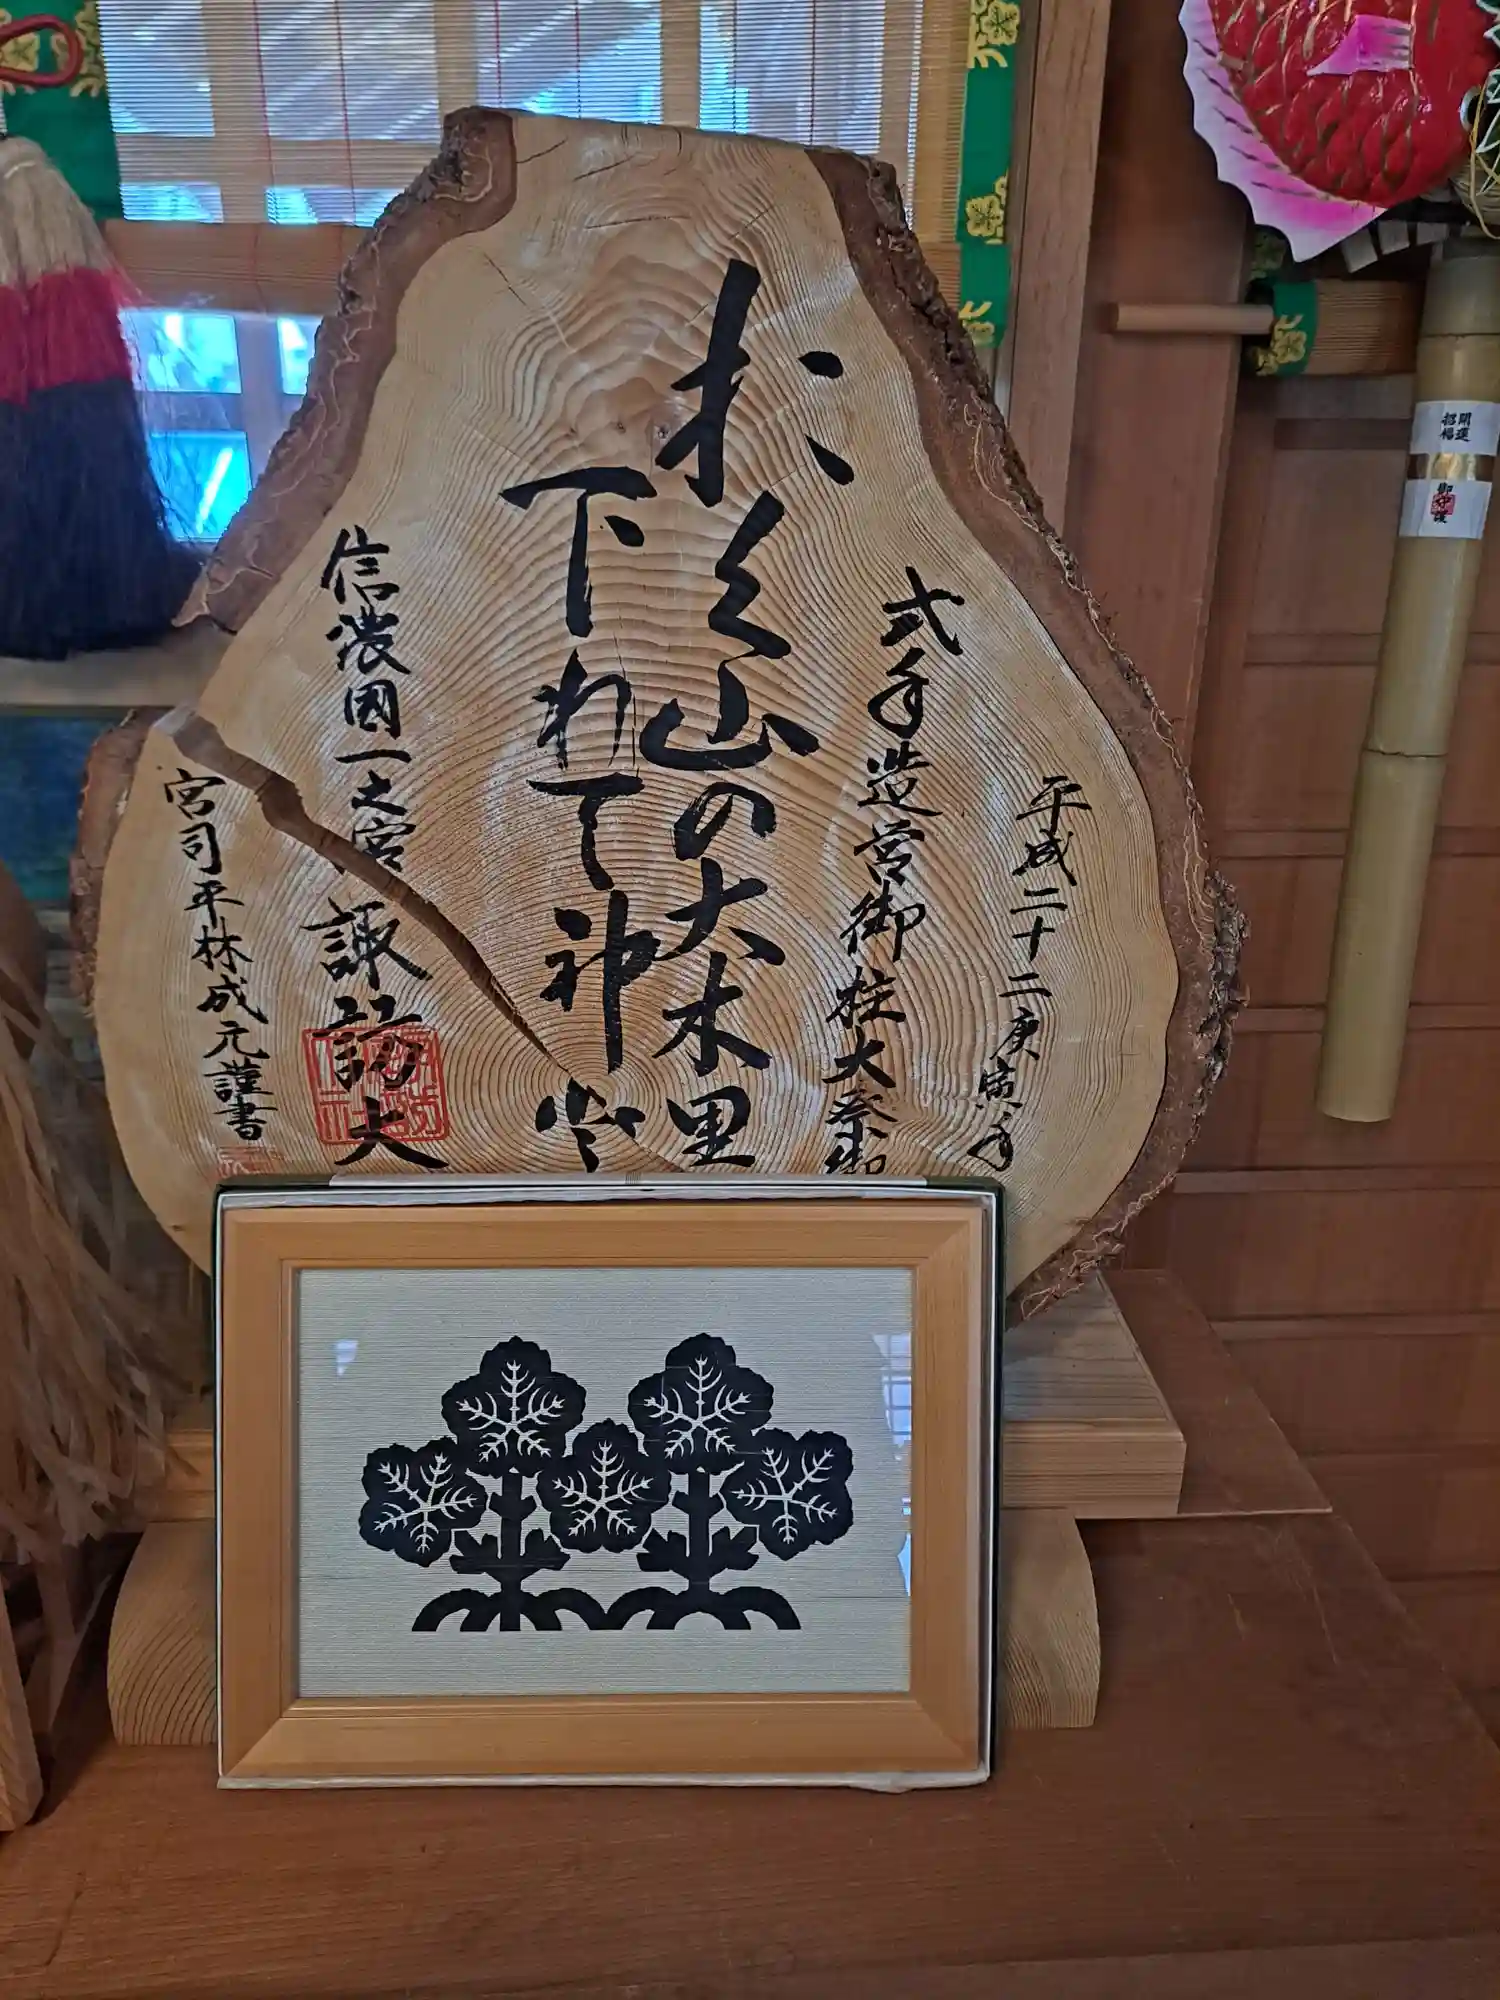 平成二十二庚寅年
式年造営御柱大祭御
おく山の大木里
下れて神
信濃國一之宮 諏訪大
宮司平林成元謹書
開運
招福
御守護